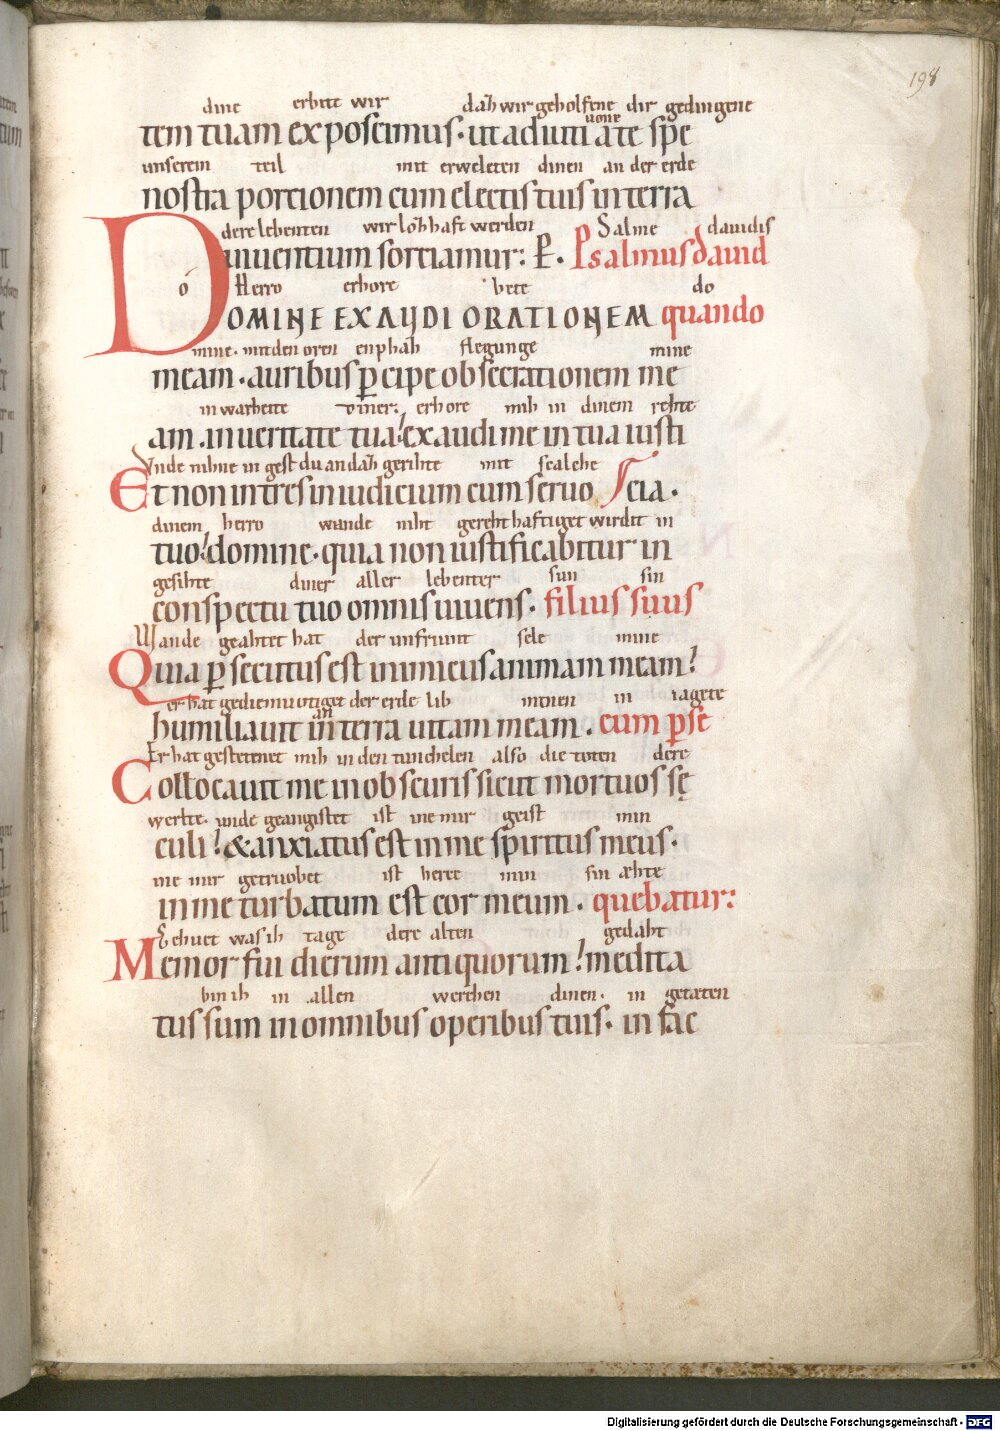 198
dine erbite wir daħ wir geholfene dir gedingene
uone
tem tuam exposcimus· ut adiuti a te spe
unserem teil mit erweleten dinen an der erde
nostra portionem cum electis tuis in terra
dere lebenten wir loħhaft werden Salme dauidis
uiuentium sortiamur: P. Psalmus dauid
ó Herro erhore bete do
DOMINE EXAUDI ORATIONEM quando
mine· mit den oren enphah flegunge mine
meam· auribus p̱cipe obsecrationem me
in warheite diner: erhore mih in dinem rehte
am· in ueritate tua! exaudi me in tua iusti
Unde niħne in gest du an daħ gerihte mit scalche
Et non intres in iudicium cum seruo Scia·
dinem herro wande niht gerehthaftiget wirdit in
tuo! domine· quia non iustificabitur in
gesihte diner aller lebenter sun sin
conspectu tuo omnis uiuens· filius suus
Wande geahtet hat der unfrunt sele mine
Quia p̱secutus est inimicus animam meam!
er hat gediemuotiget der erde lib minen in iagete
an
humiliauit in terra uitam meam· eum p̱se
Er hat gestetenet mih in den tunchelen also die toten dere
Collocauit me in obscuris sicut mortuos sę
werlte· unde geangistet ist ine mir geist min
culi! & anxiatus est in me spiritus meus·
ine mir getruobet ist herce min sin æhte
in me turbatum est cor meum· quebatur:
Gehuet was ih tage dere alten gedaht
Memor fui dierum antiquorum! medita
bin ih in allen werchen dinen· in getaten
tus sum in omnibus operibus tuis· in fac
Digitalisierung gefördert durch die Deutsche Forschungsgemeinschaft - DFG